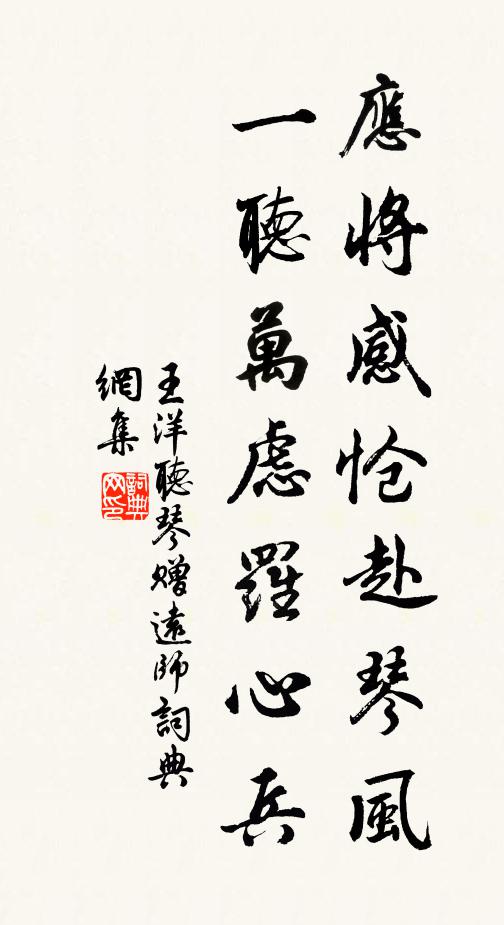 應將感愴赴琴風
一聽萬慮羅心兵
王洋聽琴贈遠師詞典
網集
詞典
网印